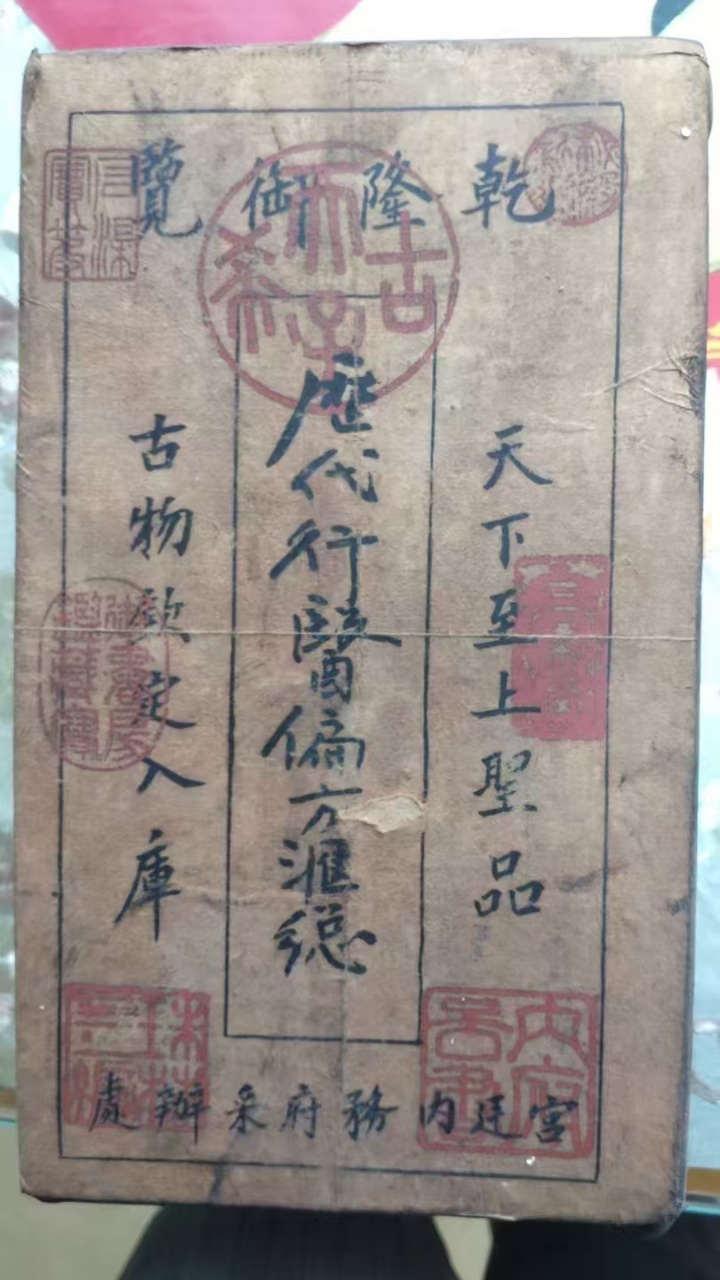 乾隆御覽
天下至上聖品
歷代行醫偏方滙總
古物欽定入庫
宮廷內務府采辦處
古稀天子
內府書畫